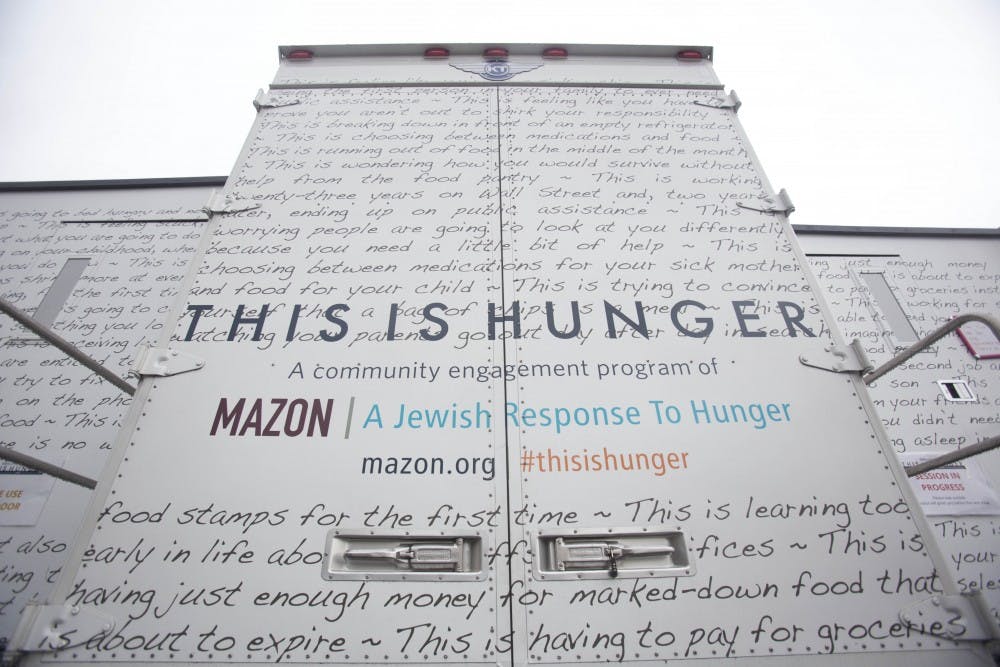 KT
This is
the first person in your family to ever need
public assistance ~ This is feeling like you have
prove you aren't out to shirk your responsibility
This is breaking down in front of an empty refrigerator
This is choosing between medications and food ~
This is running out of food in the middle of the month
This is wondering how you would survive without
help from the food pantry ~ This is working
twenty-three years on Wall Street and, two years
later, ending up on public assistance ~ This
worrying people are going to look at you differently
because you need a little bit of help ~ This is
choosing between medications for your sick mother
and food for your child ~ This is trying to convince
yourself that a bag of chips is a meal ~ This is
THIS IS HUNGER
watching your parents go out day after day in search
A community engagement program of
MAZON | A Jewish Response To Hunger
mazon.org #thisishunger
food stamps for the first time ~ This is learning too
early in life abo ffs fices ~ This is
having just enough money for marked-down food that
is about to expire ~ This is having to pay for groceries
is going to bed hungry and no
what you are going to do
childhood, whe
you do This is
more at eve
the first ti
is going to c
thing you lo
receiving l
are entitled t
try to fix
on the pho
food ~ This is
e is no w
USE
DOOR
t also
ting t
just enough money
food is about to exp
groceries inst
working for
able to
imagin
second job
son This
you didn't nee
ng asleep in
SESSION IN
PROGRESS
This i
your
sele